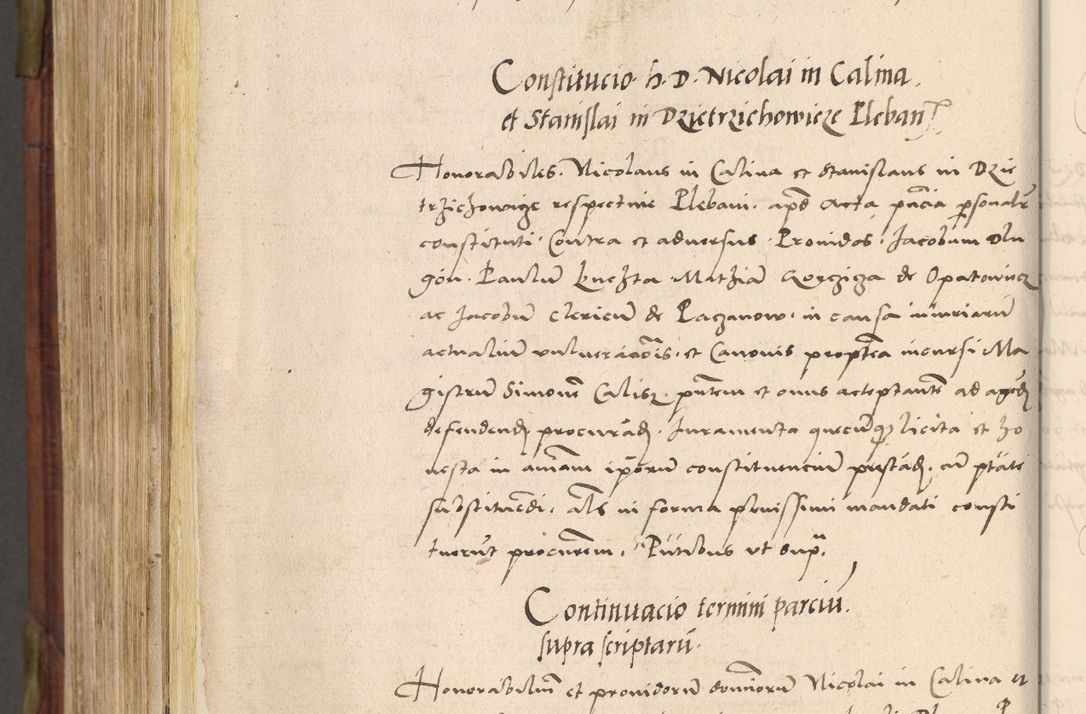 Constitucio h. D. Nicolai in Calina
et Stanislai in Dzietrzichowicze Pleban
Honorabiles Nicolaus in Calina et Stanislaus in Dzie
trzichowicze respectiue Plebani, apd Acta pncia psonalr
constituti, Contra et aduersus Prouidos Jacobum Dlu
gon, Paulum Kuchta, Mathiam de Opatowiecz
ac Jacobum clericum de Paczanow, in causa iniuriarum
actualium vulneracois, et Canonis proptea incursi Ma
gistrum Simonem Calisz, pntem et onus acceptantem ad agend
defendend, procurad, Juramenta quecunq licita et ho
nesta in aniam iporum constituencium prestad, cum ptate
substituendi, als in forma plenissimi mandati consti
tuerunt procurem, Pntibus vt supra.
Continuacio termini parcium
supra scriptarum
Honorabilium et prouidorum dominorum Nicolai in Calina et